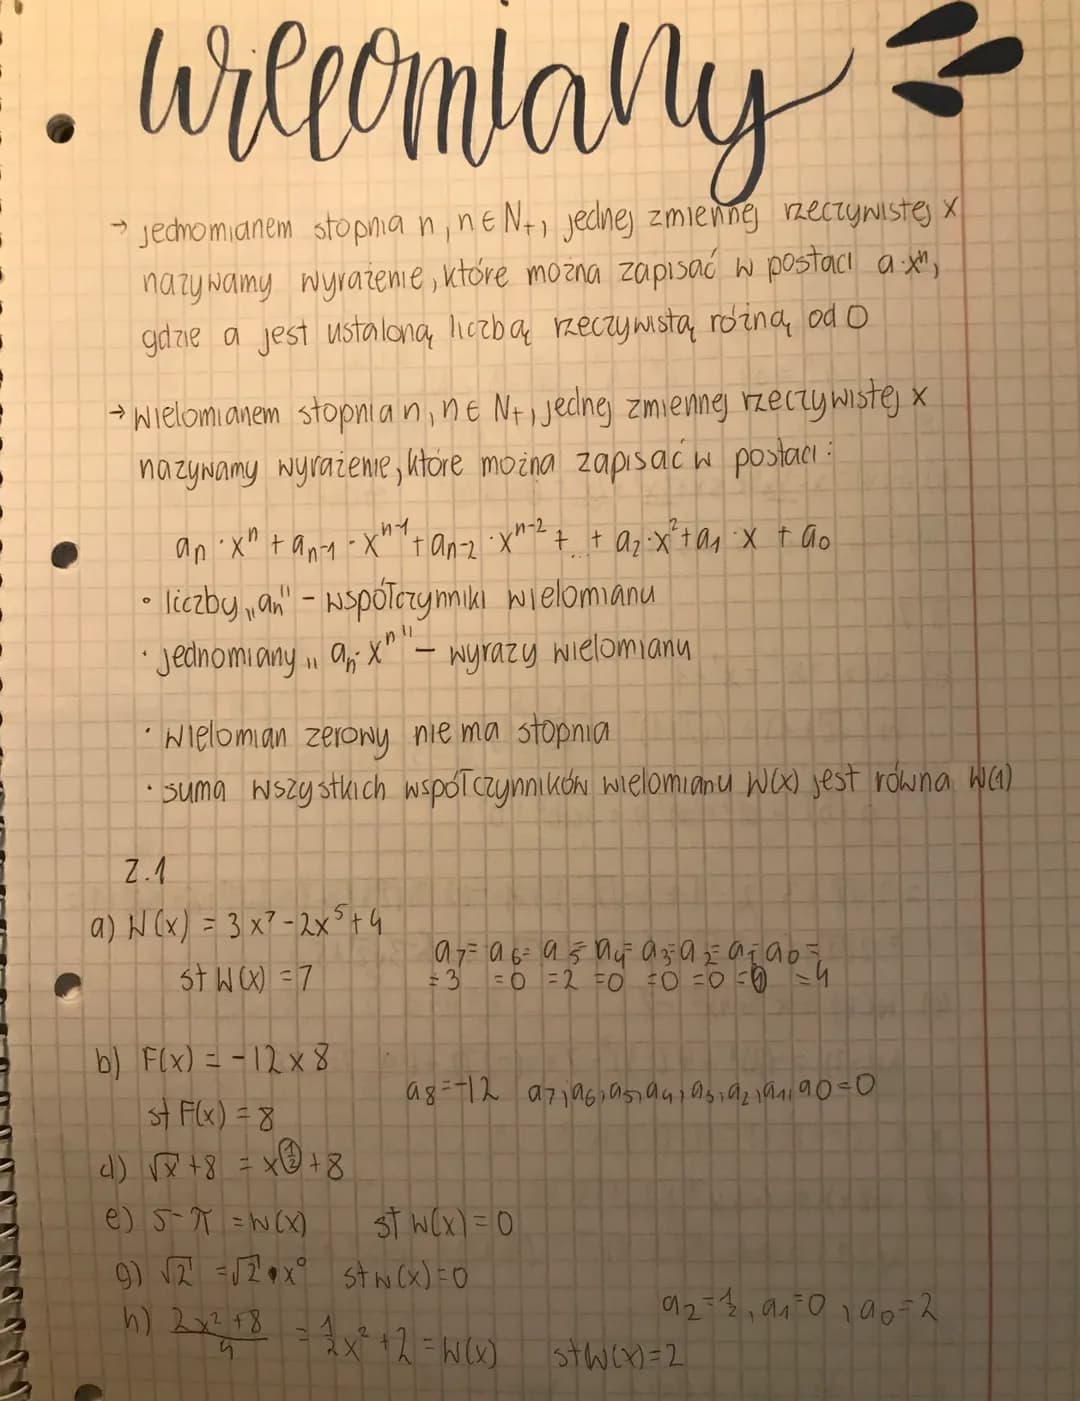 wielomiany
→ jednomianem stopnia n, n ∈ N₊, jednej zmiennej rzeczywistej x
nazywamy wyrażenie, które można zapisać w postaci a·xⁿ,
gdzie a jest ustaloną liczbą rzeczywistą różną od 0
→ wielomianem stopnia n, n ∈ N₊, jednej zmiennej rzeczywistej x
nazywamy wyrażenie, które można zapisać w postaci:
aₙ·xⁿ + aₙ₋₁·xⁿ⁻¹ + aₙ₋₂·xⁿ⁻² + ... + a₂·x² + a₁·x + a₀
• liczby „aₙ" – współczynniki wielomianu
• jednomiany „aₙ·xⁿ" – wyrazy wielomianu
• wielomian zerowy nie ma stopnia
• suma wszystkich współczynników wielomianu W(x) jest równa W(1)
2.1
a) W(x) = 3x⁷ - 2x⁵ + 4
a₇= a₆= a₅= a₄= a₃= a₂= a₁= a₀=
st W(x) = 7 =3 =0 =2 =0 =0 =0 =0 =4
b) F(x) = -12x8
a₈=-12 a₇, a₆, a₅, a₄, a₃, a₂, a₁, a0=0
st F(x) = 8
d) √x + 8 = x^½ + 8
e) 5-π = W(x) st W(x) = 0
g) √2 = √2 • x⁰ st W(x) = 0
a₂=½, a₁=0, a₀=2
h) (2x²+8)/4 = ½x² + 2 = W(x) st W(x) = 2